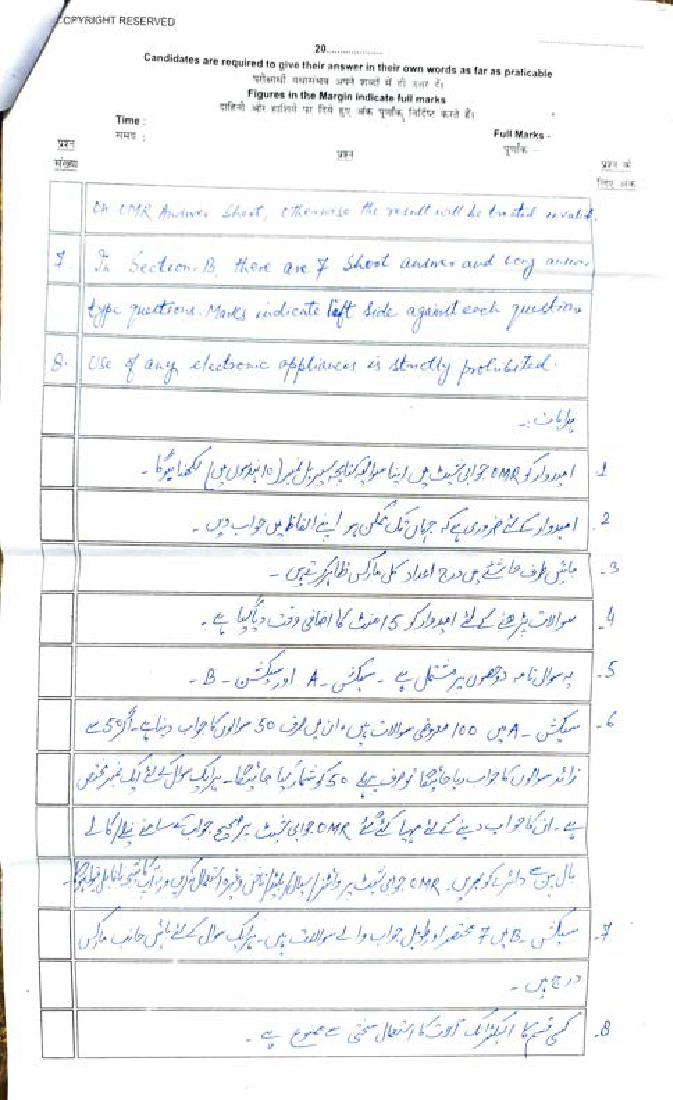 COPYRIGHT RESERVED
20..................
Candidates are required to give their answer in their own words as far as praticable
परीक्षार्थी यथासंभव अपने शब्दों में ही उत्तर दें।
Figures in the Margin indicate full marks
दाहिनी ओर हाशिये पर दिये हुए अंक पूर्णांक निर्दिष्ट करते हैं।
Time :
Full Marks -
समय :
पूर्णांक -
प्रश्न संख्या
प्रश्न
प्रश्न के लिए अंक
on OMR Answer Sheet, otherwise the result will be treated invalid.
7 In Section-B, there are 7 Short answer and long answer
type questions. Marks indicate left side against each question
8. Use of any electronic appliances is strictly prohibited.
ہدایات :-
1. امیدوار کو OMR جوابی شیٹ میں اپنا سوالیہ کتابچہ سیریل نمبر (10 ہندسوں میں) لکھنا ہوگا۔
2. امیدوار کے لئے ضروری ہے کہ جہاں تک ممکن ہو اپنے الفاظ میں جواب دیں۔
3. بائیں طرف حاشئے میں درج اعداد کل مارکس ظاہر کرتے ہیں۔
4. سوالات پڑھنے کے لئے امیدوار کو 15 منٹ کا اضافی وقت دیا گیا ہے۔
5. یہ سوال نامہ دو حصوں پر مشتمل ہے۔ سیکشن-A اور سیکشن-B۔
6. سیکشن-A میں 100 معروضی سوالات ہیں، ان میں صرف 50 سوالوں کا جواب دینا ہے۔ اگر 50 سے
زائد سوالوں کا جواب دیا جائیگا تو صرف پہلے 50 کو شمار کیا جائیگا۔ ہر ایک سوال کے لئے ایک نمبر مختص
ہے۔ ان کا جواب دینے کے لئے مہیا کئے گئے OMR جوابی شیٹ پر صحیح جواب کے سامنے نیلے/کالے
بال پن سے دائرے کو بھریں۔ OMR جوابی شیٹ پر وائٹنر/سیال/بلیڈ/ناخن وغیرہ استعمال نہ کریں ورنہ آپ کا نتیجہ
7. سیکشن-B میں 7 مختصر اور طویل جواب والے سوالات ہیں۔ ہر ایک سوال کے لئے بائیں جانب مارکس
درج ہیں۔
8. کسی قسم کا الیکٹرانک آلات کا استعمال سختی سے ممنوع ہے۔